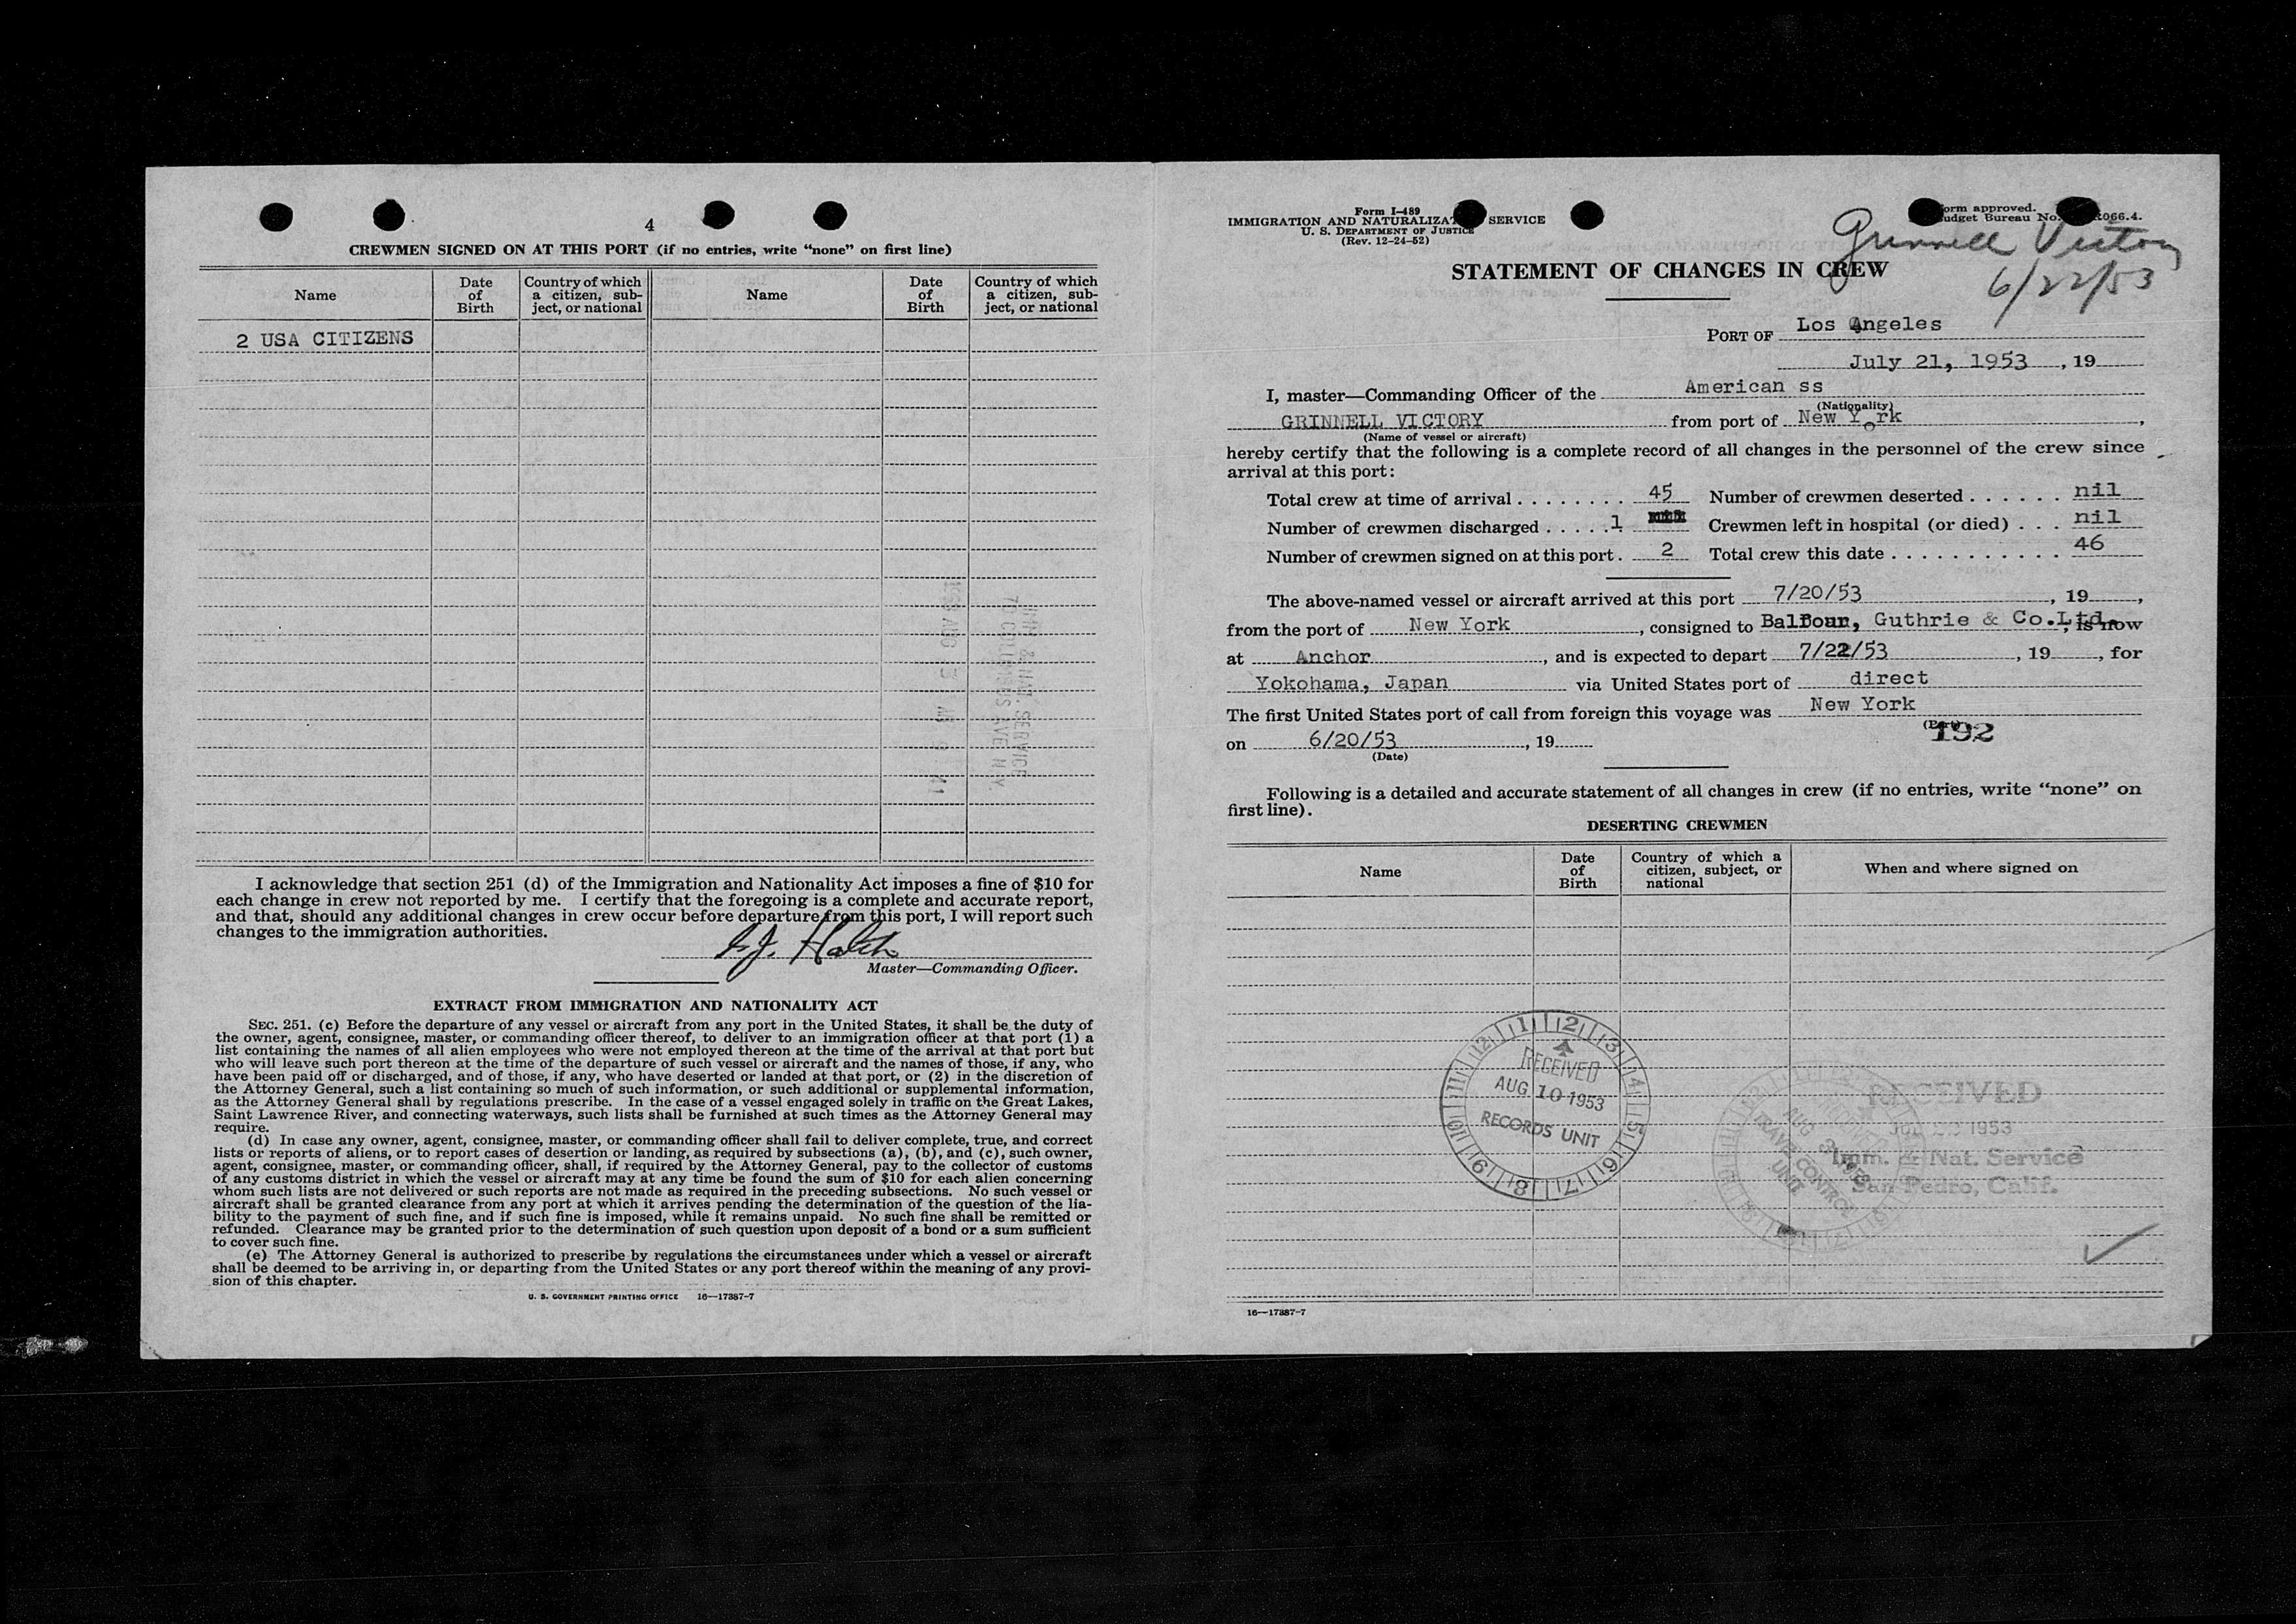 4
CREWMEN SIGNED ON AT THIS PORT (if no entries, write “none” on first line)
Name
Date of Birth
Country of which a citizen, sub-ject, or national
Name
Date of Birth
Country of which a citizen, sub-ject, or national
2 USA CITIZENS
I acknowledge that section 251 (d) of the Immigration and Nationality Act imposes a fine of $10 for
each change in crew not reported by me. I certify that the foregoing is a complete and accurate report,
and that, should any additional changes in crew occur before departure from this port, I will report such
changes to the immigration authorities.
Master—Commanding Officer.
EXTRACT FROM IMMIGRATION AND NATIONALITY ACT
SEC. 251. (c) Before the departure of any vessel or aircraft from any port in the United States, it shall be the duty of
the owner, agent, consignee, master, or commanding officer thereof, to deliver to an immigration officer at that port (1) a
list containing the names of all alien employees who were not employed thereon at the time of the arrival at that port but
who will leave such port thereon at the time of the departure of such vessel or aircraft and the names of those, if any, who
have been paid off or discharged, and of those, if any, who have deserted or landed at that port, or (2) in the discretion of
the Attorney General, such a list containing so much of such information, or such additional or supplemental information,
as the Attorney General shall by regulations prescribe. In the case of a vessel engaged solely in traffic on the Great Lakes,
Saint Lawrence River, and connecting waterways, such lists shall be furnished at such times as the Attorney General may
require.
(d) In case any owner, agent, consignee, master, or commanding officer shall fail to deliver complete, true, and correct
lists or reports of aliens, or to report cases of desertion or landing, as required by subsections (a), (b), and (c), such owner,
agent, consignee, master, or commanding officer, shall, if required by the Attorney General, pay to the collector of customs
of any customs district in which the vessel or aircraft may at any time be found the sum of $10 for each alien concerning
whom such lists are not delivered or such reports are not made as required in the preceding subsections. No such vessel or
aircraft shall be granted clearance from any port at which it arrives pending the determination of the question of the lia-
bility to the payment of such fine, and if such fine is imposed, while it remains unpaid. No such fine shall be remitted or
refunded. Clearance may be granted prior to the determination of such question upon deposit of a bond or a sum sufficient
to cover such fine.
(e) The Attorney General is authorized to prescribe by regulations the circumstances under which a vessel or aircraft
shall be deemed to be arriving in, or departing from the United States or any port thereof within the meaning of any provi-
sion of this chapter.
U. S. GOVERNMENT PRINTING OFFICE 16—17387-7
Form I-489
IMMIGRATION AND NATURALIZAT SERVICE
U. S. DEPARTMENT OF JUSTICE
(Rev. 12-24-52)
orm approved.
udget Bureau No. 066.4.
Grinnell Victory
6/22/53
STATEMENT OF CHANGES IN CREW
PORT OF Los Angeles
July 21, 1953, 19
I, master—Commanding Officer of the American ss
(Nationality)
GRINNELL VICTORY from port of New York,
(Name of vessel or aircraft)
hereby certify that the following is a complete record of all changes in the personnel of the crew since
arrival at this port:
Total crew at time of arrival . . . . . . . . 45 Number of crewmen deserted . . . . . . nil
Number of crewmen discharged . . . . . 1 Crewmen left in hospital (or died) . . . nil
Number of crewmen signed on at this port . 2 Total crew this date . . . . . . . . . . . . 46
The above-named vessel or aircraft arrived at this port 7/20/53, 19,
from the port of New York, consigned to Balfour, Guthrie & Co.Ltd., is now
at Anchor, and is expected to depart 7/22/53, 19, for
Yokohama, Japan via United States port of direct
The first United States port of call from foreign this voyage was New York
(Port)
192
on 6/20/53, 19
(Date)
Following is a detailed and accurate statement of all changes in crew (if no entries, write “none” on
first line).
DESERTING CREWMEN
Name
Date of Birth
Country of which a citizen, subject, or national
When and where signed on
RECEIVED
AUG 10 1953
RECORDS UNIT
RECEIVED
1953
Imm. & Nat. Service
San Pedro, Calif.
TRAVEL CONTROL
UNIT
16—17387-7